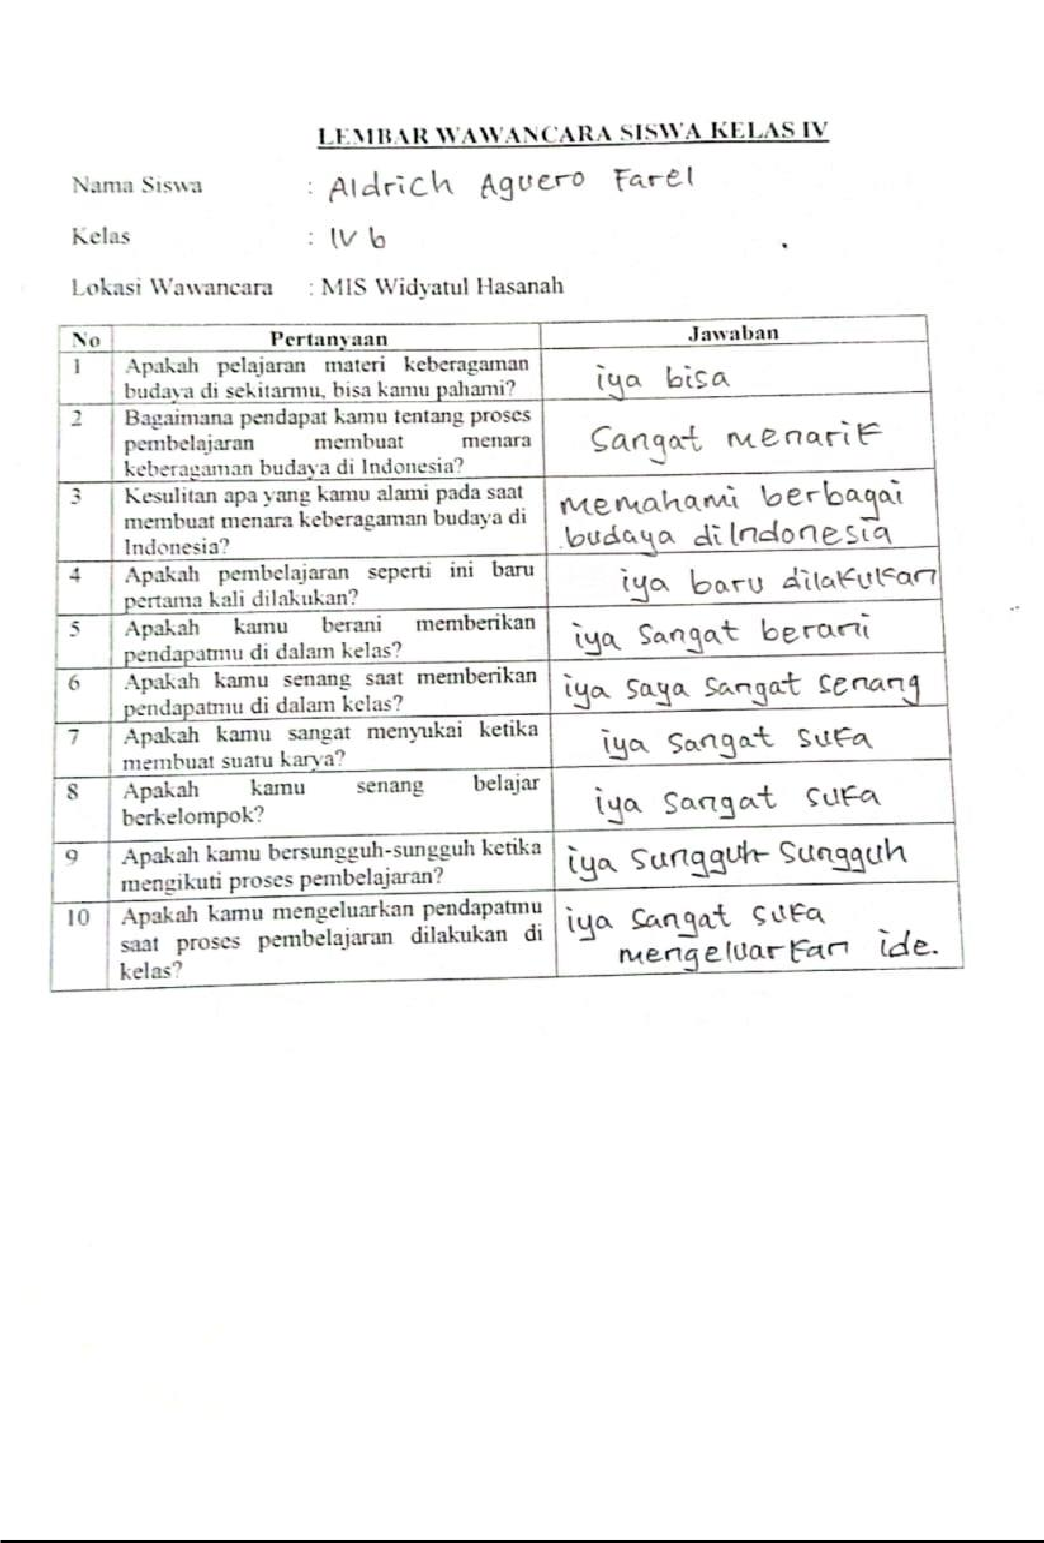 LEMBAR WAWANCARA SISWA KELAS IV
Nama Siswa : Aldrich Aguero Farel
Kelas : IV b
Lokasi Wawancara : MIS Widyatul Hasanah
No Pertanyaan Jawaban
1 Apakah pelajaran materi keberagaman
budaya di sekitarmu, bisa kamu pahami?
iya bisa
2 Bagaimana pendapat kamu tentang proses
pembelajaran membuat menara
keberagaman budaya di Indonesia?
Sangat menarik
3 Kesulitan apa yang kamu alami pada saat
membuat menara keberagaman budaya di
Indonesia?
memahami berbagai
budaya di Indonesia
4 Apakah pembelajaran seperti ini baru
pertama kali dilakukan?
iya baru dilakukan
5 Apakah kamu berani memberikan
pendapatmu di dalam kelas?
iya Sangat berani
6 Apakah kamu senang saat memberikan
pendapatmu di dalam kelas?
iya saya sangat senang
7 Apakah kamu sangat menyukai ketika
membuat suatu karya?
iya sangat suka
8 Apakah kamu senang belajar
berkelompok?
iya sangat suka
9 Apakah kamu bersungguh-sungguh ketika
mengikuti proses pembelajaran?
iya sungguh-sungguh
10 Apakah kamu mengeluarkan pendapatmu
saat proses pembelajaran dilakukan di
kelas?
iya sangat suka
mengeluarkan ide.